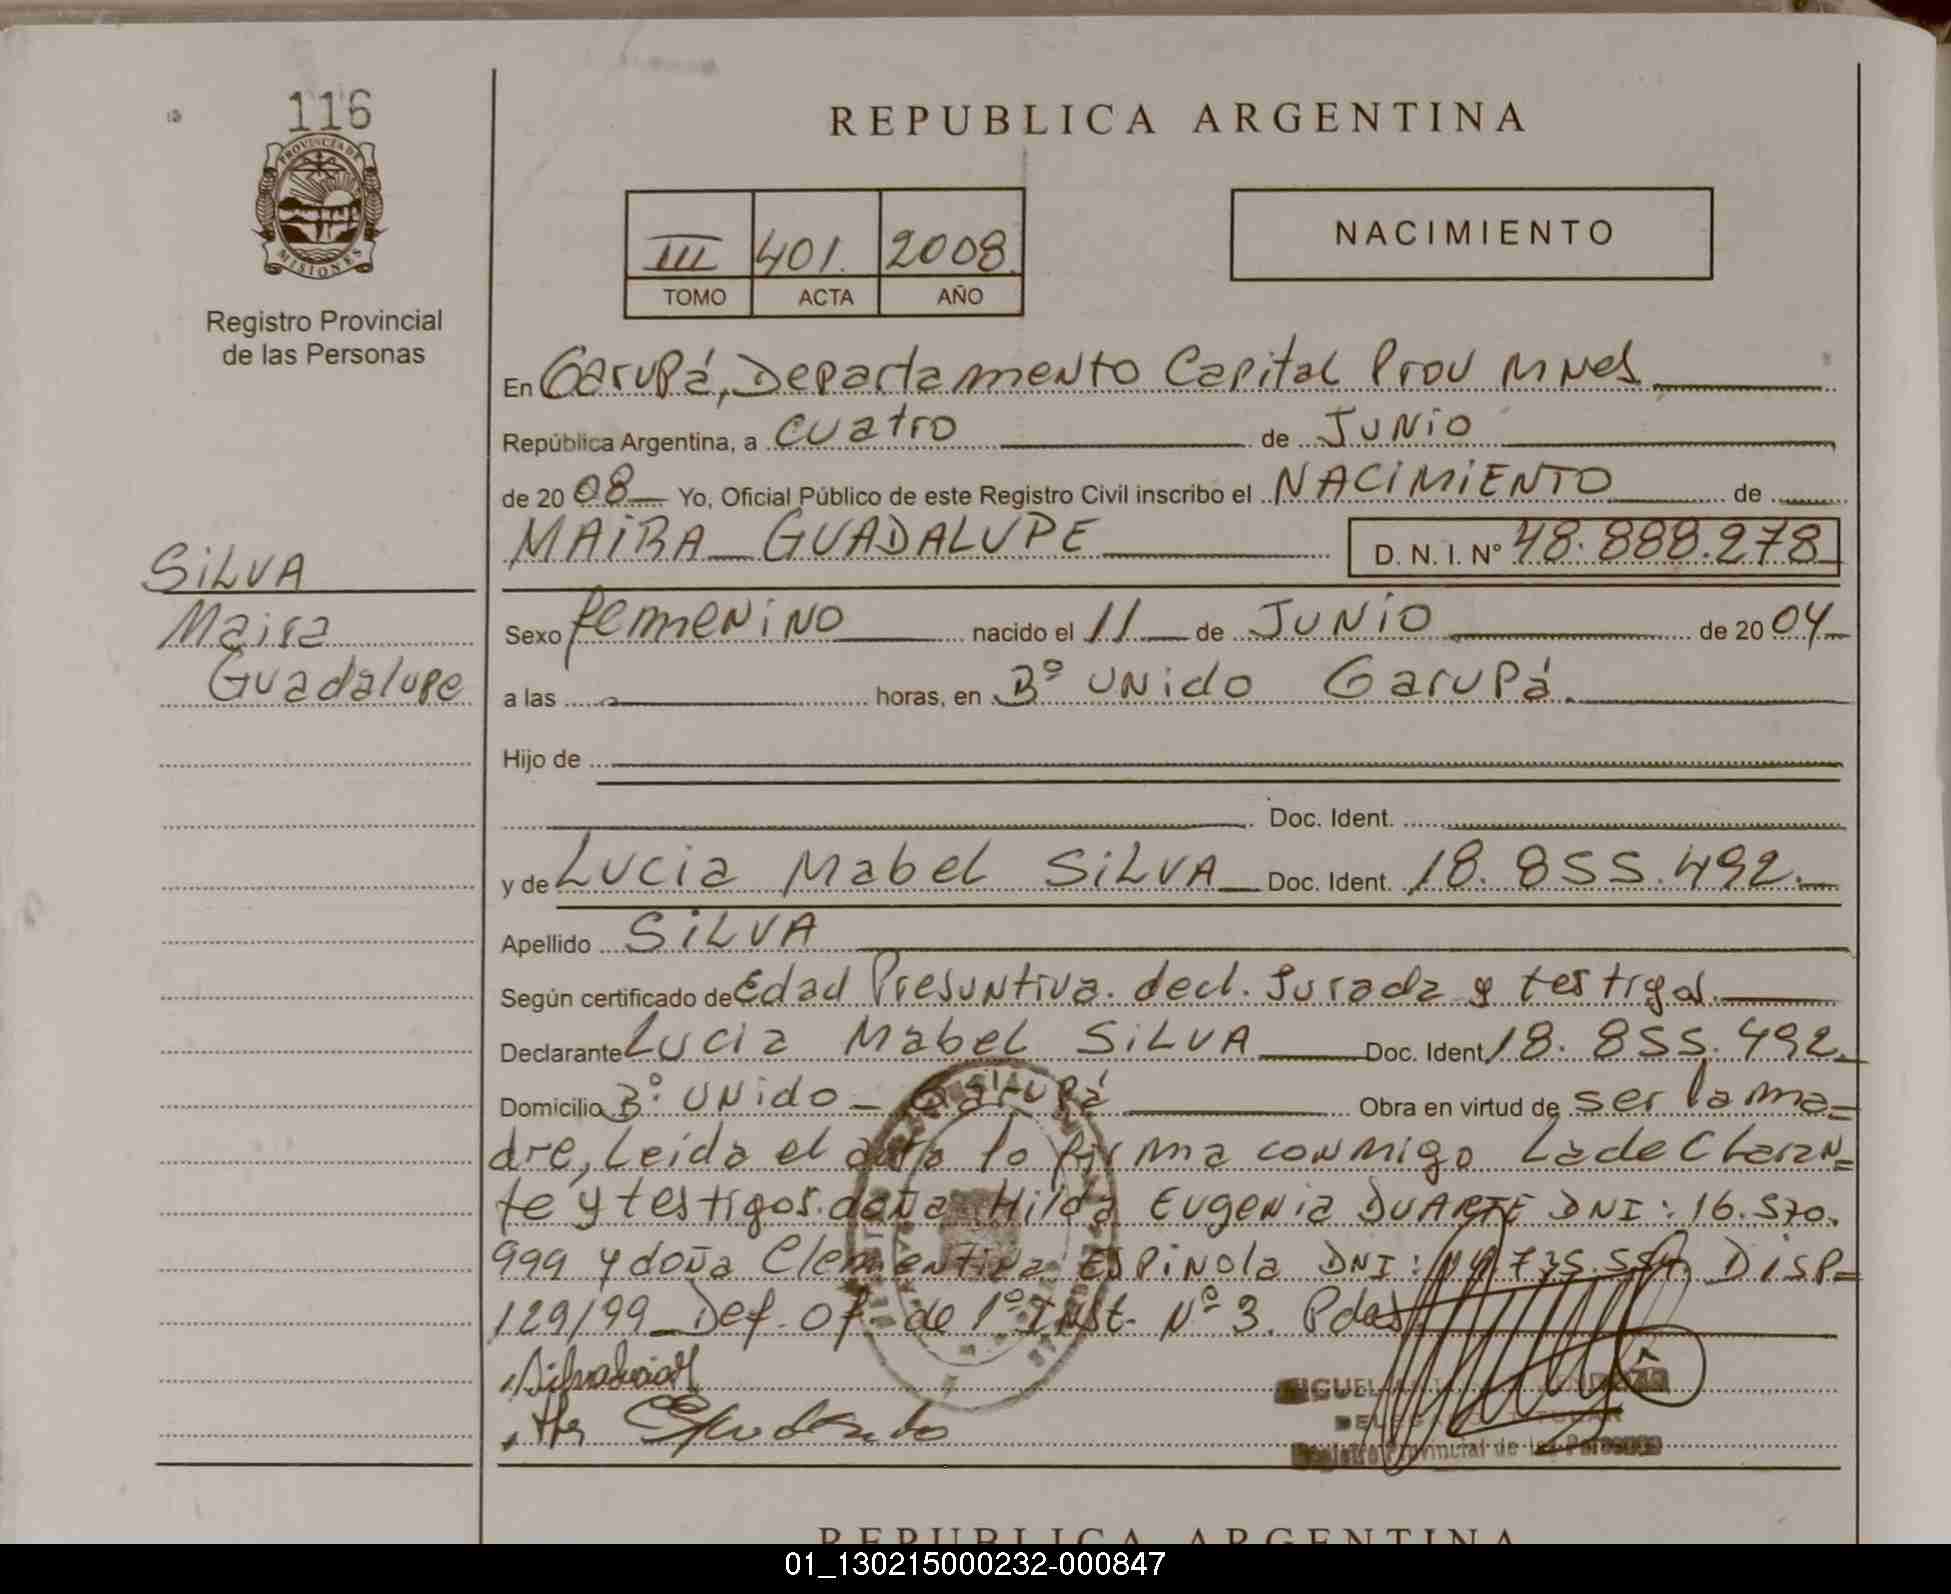 116
PROVINCIA DE
MISIONES
Registro Provincial
de las Personas
REPUBLICA ARGENTINA
III 401. 2008.
TOMO ACTA AÑO
NACIMIENTO
En Garupá, Departamento Capital Prov Mnes
República Argentina, a cuatro de Junio
de 2008 Yo, Oficial Público de este Registro Civil inscribo el NACIMIENTO de
MAIRA GUADALUPE D. N. I. Nº 48.888.278
SILVA
Maira
Guadalupe
Sexo femenino nacido el 11 de JUNIO de 2004
a las horas, en Bº Unido Garupá.
Hijo de
Doc. Ident.
y de Lucia Mabel SILVA Doc. Ident. 18.855.492.
Apellido SILVA
Según certificado de Edad Presuntiva. decl. Jurada y testigos.
Declarante Lucia Mabel SILVA Doc. Ident. 18.855.492.
Domicilio Bº Unido - Garupá Obra en virtud de ser la ma=
dre, Leída el acta lo firma conmigo La declaran=
te y testigos. doña Hilda Eugenia DUARTE DNI: 16.570.
999 y doña Clementina ESPINOLA DNI: Disp=
129/99 Def. Of. de 1º Inst. Nº 3. Pdas
MIGUEL
Registro Provincial de las Personas
REPUBLICA ARGENTINA
01_130215000232-000847